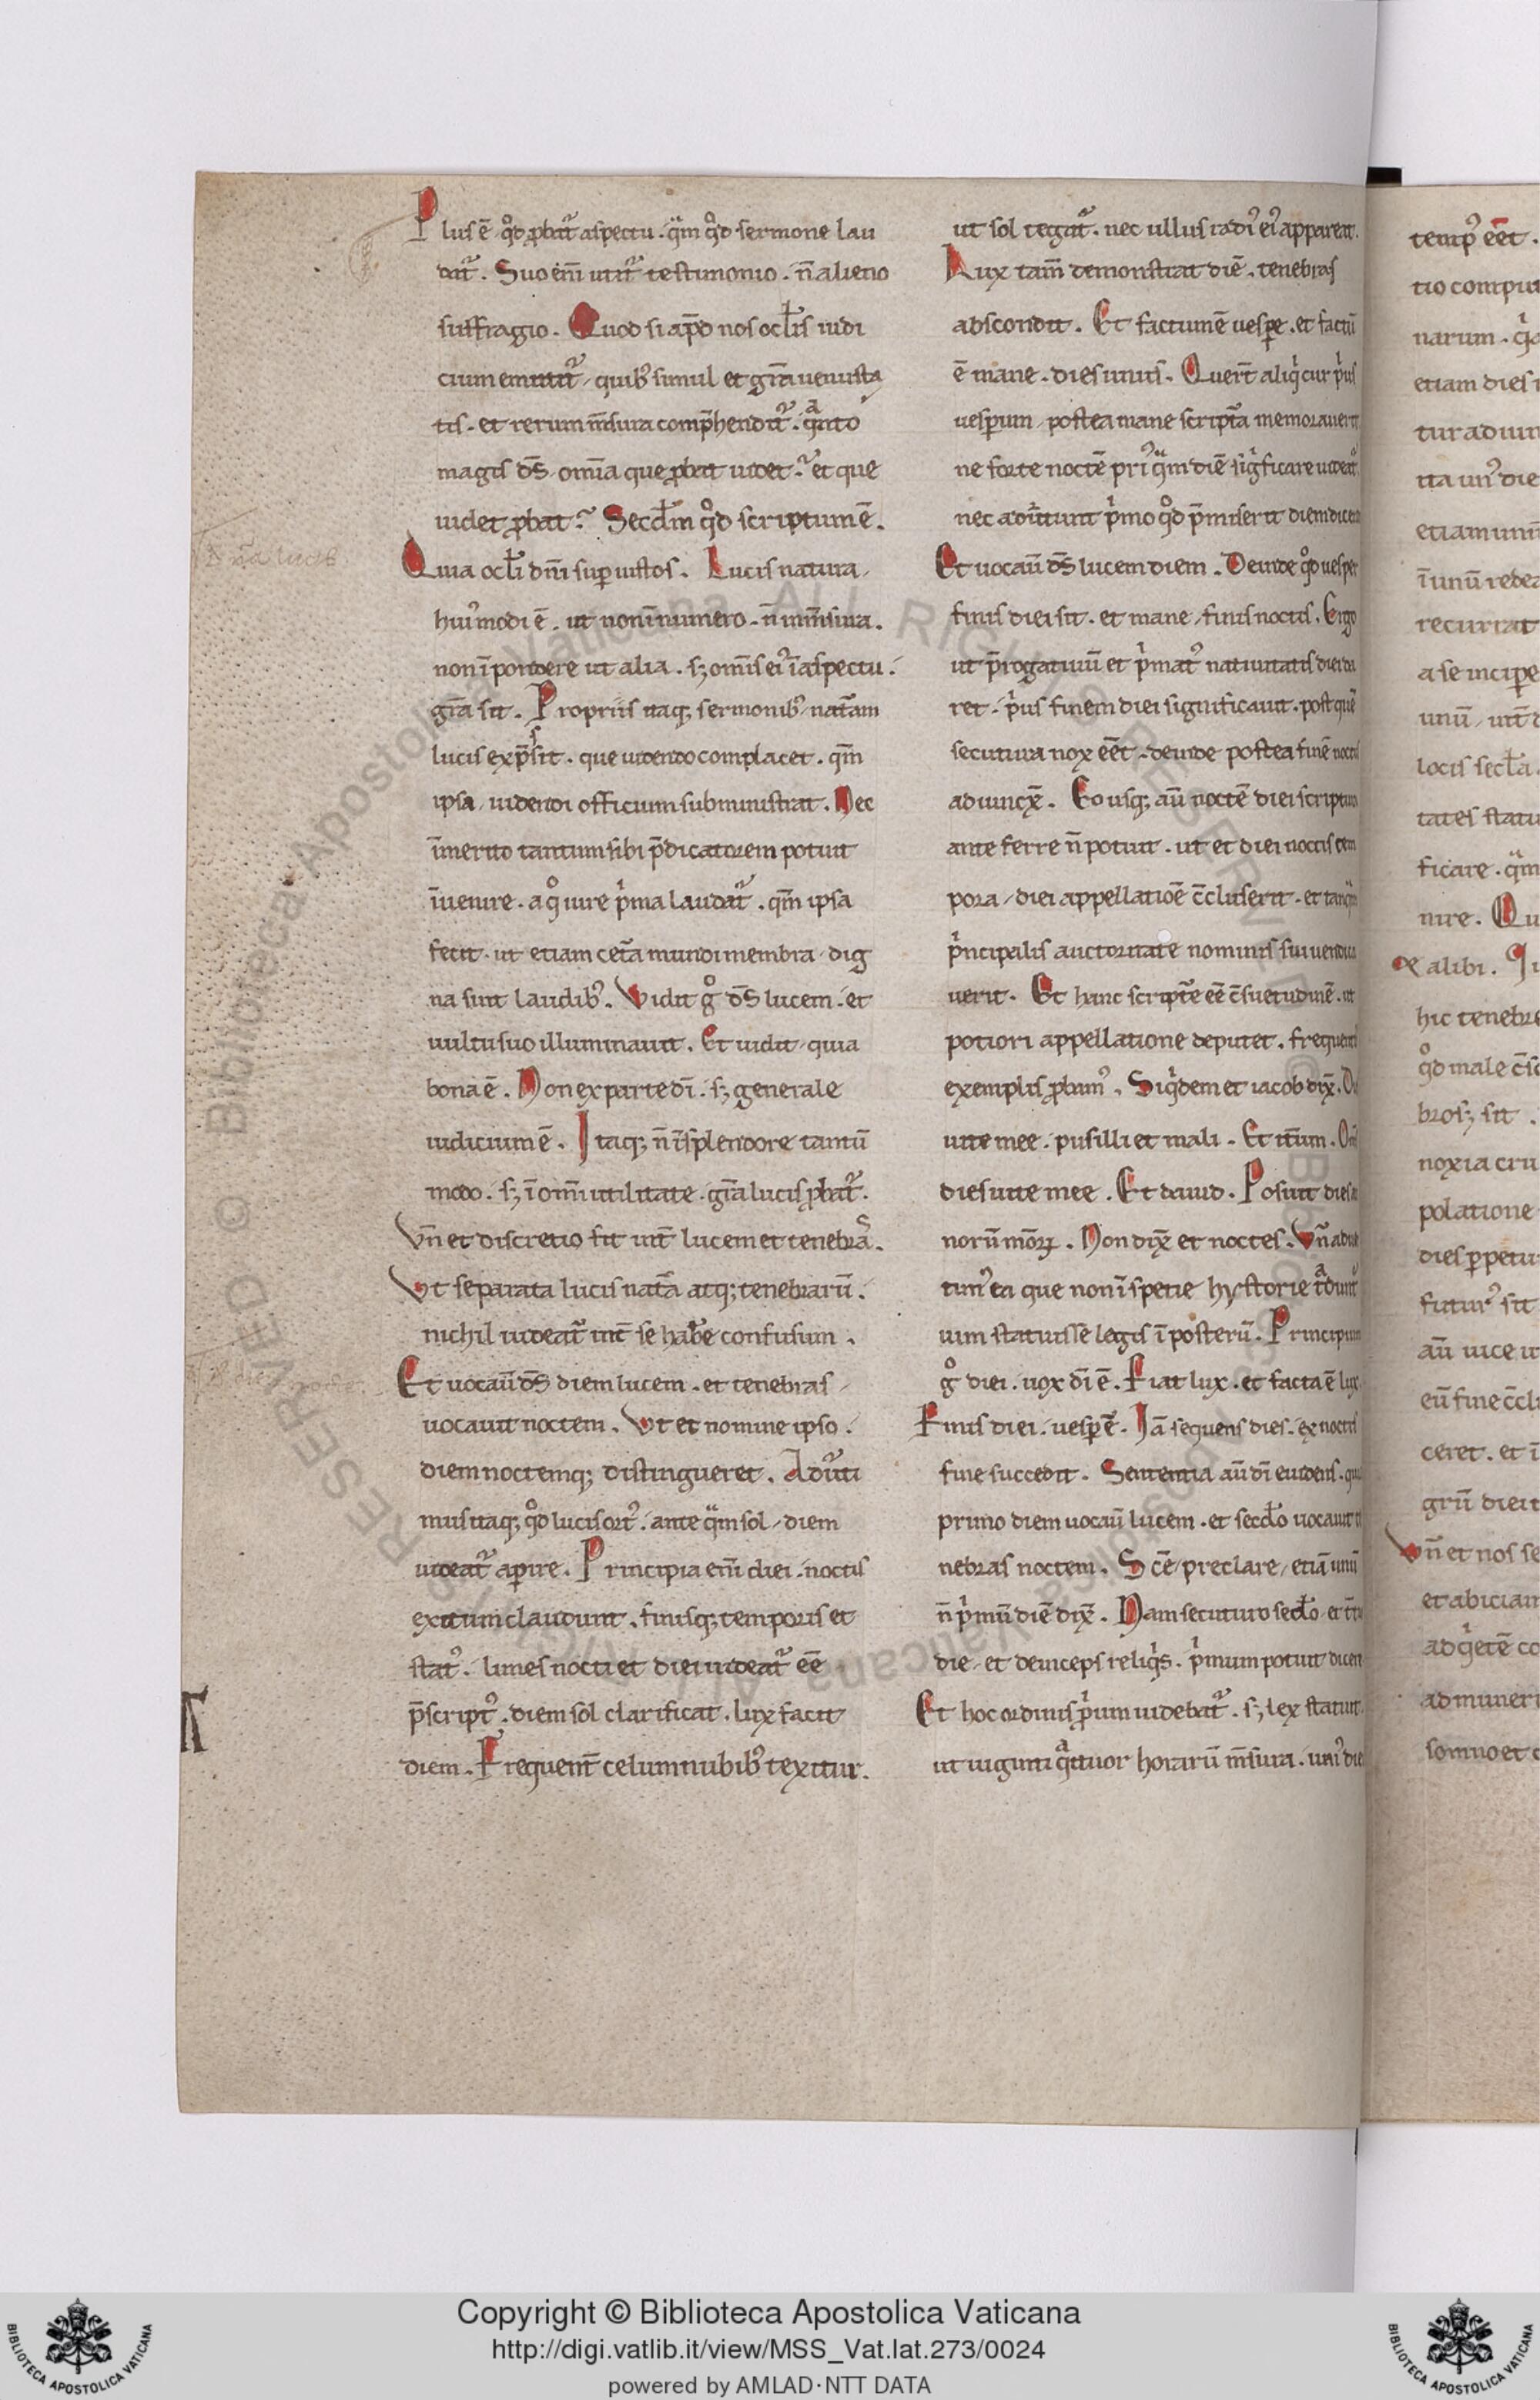 Plus ē qd̊ ꝓbat᷑ aspectu. q̈m qd̊ sermone lau
dat᷑. Suo eni̅ utit᷑ testimonio. n̅ alieno
suffragio. Quod si ap̅d nos ocl̅is iudi
cium emittit᷑, quib᷒ simul et gr̅a uenusta
tis. et rerum m̅sura comp̅hendit᷑. qͣnto
magis d̅s omi̅a que ꝓbat uidet. et que
uidet ꝓbat. Secd̅m qd̊ scriptum ē.
Quia ocl̅i dn̅i sup̲ iustos. Lucis natura,
hui᷒modi ē. ut non i̅ numero. n̅ i̅ m̅sura.
non i̅ pondere ut alia. sꝫ omi̅s ei᷒ i̅ aspectu.
gr̅a sit. Propriis itaqꝫ sermonib᷒ nat᷑am
lucis exp̅ssit. que uidendo complacet. qm̅
ipsa, uidendi officium subministrat. Nec
i̅merito tantum sibi p̅dicatorem potuit
i̅uenire. a qͦ iure pͥma laudat᷑. qm̅ ipsa
fecit. ut etiam cet᷑a mundi membra, dig
na sint laudib᷒. Vidit gͦ d̅s lucem. et
uultu suo illuminauit. Et uidit, quia
bona ē. Non ex parte di̅. sꝫ generale
iudicium ē. Itaqꝫ n̅ i̅ splendore tantu̅
modo. sꝫ i̅ omi̅ utilitate. gr̅a lucis ꝓbat᷑.
Vn̅ et discretio fit int᷑ lucem et tenebras.
Vt separata lucis nat᷑a atqꝫ tenebraru̅.
nichil uideat᷑ int᷑ se hab̅e confusum.
Et uocau̅ d̅s diem lucem. et tenebras,
uocauit noctem. Vt et nomine ipso.
diem noctemqꝫ distingueret. Adu᷑ti
mus itaqꝫ qd̊ lucis ort᷒. ante q̈m sol, diem
uideat᷑ apire. Principia eni̅ diei. noctis
exitum claudunt. finisqꝫ temporis et
stat᷒. limes nocti et diei uideat᷑ ee̅
p̅script᷒. diem sol clarificat. lux facit
diem. Frequent᷑ celum nubib᷒ texitur.
ut sol tegat᷑. nec ullus radi᷒ ei᷒ appareat.
Lux tam̅ demonstrat die̅. tenebras
abscondit. Et factum ē uespe. et factu̅
ē mane. dies unus. Queru̅t aliqͥ cur pͥus
uesp̲um, postea mane script᷑a memorauerit
ne forte nocte̅ pri᷒ q̈m die̅ sig̅ficare uideat᷑
nec adu᷑tunt pͥmo qd̊ p̅miserit diem dicens
Et uocau̅ d̅s lucem diem. Deinde qd̊ uesper
finis diei sit. et mane, finis noctis. Ergo
ut p̅rogatiuu̅ et pͥmat᷒ natiuitatis diei da
ret. pͥus finem diei significauit. post que̅
secutura nox ee̅t. deinde postea fine̅ noctis
adiunx̅. Eo usqꝫ au̅ nocte̅ diei scriptura
ante ferre n̅ potuit. ut et diei noctis tem
pora, diei appellatio̅e c̅cluserit. et tanq̈m
pͥncipalis auctoritate nominis sui uendica
uerit. Et hanc script᷑e ee̅ c̅suetudine̅. ut
potiori appellatione deputet. frequenti
exemplis ꝓbam᷒. Siqͥdem et iacob dix̅. Di
uite mee. pusilli et mali. Et it᷑um. Om̅s
dies uite mee. Et dauid. Posuit dies a
noru̅ meo̅ꝝ. Non dix̅ et noctes. Vn̅ aduer
tim᷒ ea que non i̅ spetie hystorie tͣdunt᷑
uim statuisse legis i̅ posteru̅. Principium
gͦ diei. uox di̅ ē. Fiat lux. et facta ē lux.
Finis diei. uesp̲ ē. Ia̅ sequens dies. ex noctis
fine succedit. Sententia au̅ di̅ euidens. quia
primo diem uocau̅ lucem. et secd̅o uocauit te
nebras noctem. Sc̅e, preclare, etia̅ unu̅
n̅ pͥmu̅ die̅ dix̅. Nam secuturo secd̅o, et t᷑tio
die, et deinceps reliqͥs. pͥmum potuit dicere
Et hoc ordinis pͥum uidebat᷑. sꝫ lex statuit
ut uiginti qͣttuor horaru̅ m̅sura. uni᷒ diei
temp᷒ ee̅t.
tio comput
narum. qͥa
etiam dies
tur ad
ita un᷒ die
etiam unu̅
i̅ unu̅ redea
recurrat
a se incipe
unu̅, uit᷑
locis secl̅a.
tates statu
ficare. q̈m
nire. Qu
& alibi.
hic tenebr
qd̊ male c̅s
brosꝫ sit.
noxia cru
polatione
dies p̲petu
futur᷒ sit
au̅ uice
eu̅ fine c̅cl
ceret. et i̅
gru̅ diei
Vn̅ et nos se
et abiciam
ad qͥete̅ co
ad muneri
somno et
Copyright © Biblioteca Apostolica Vaticana
http://digi.vatlib.it/view/MSS_Vat.lat.273/0024
powered by AMLAD·NTT DATA